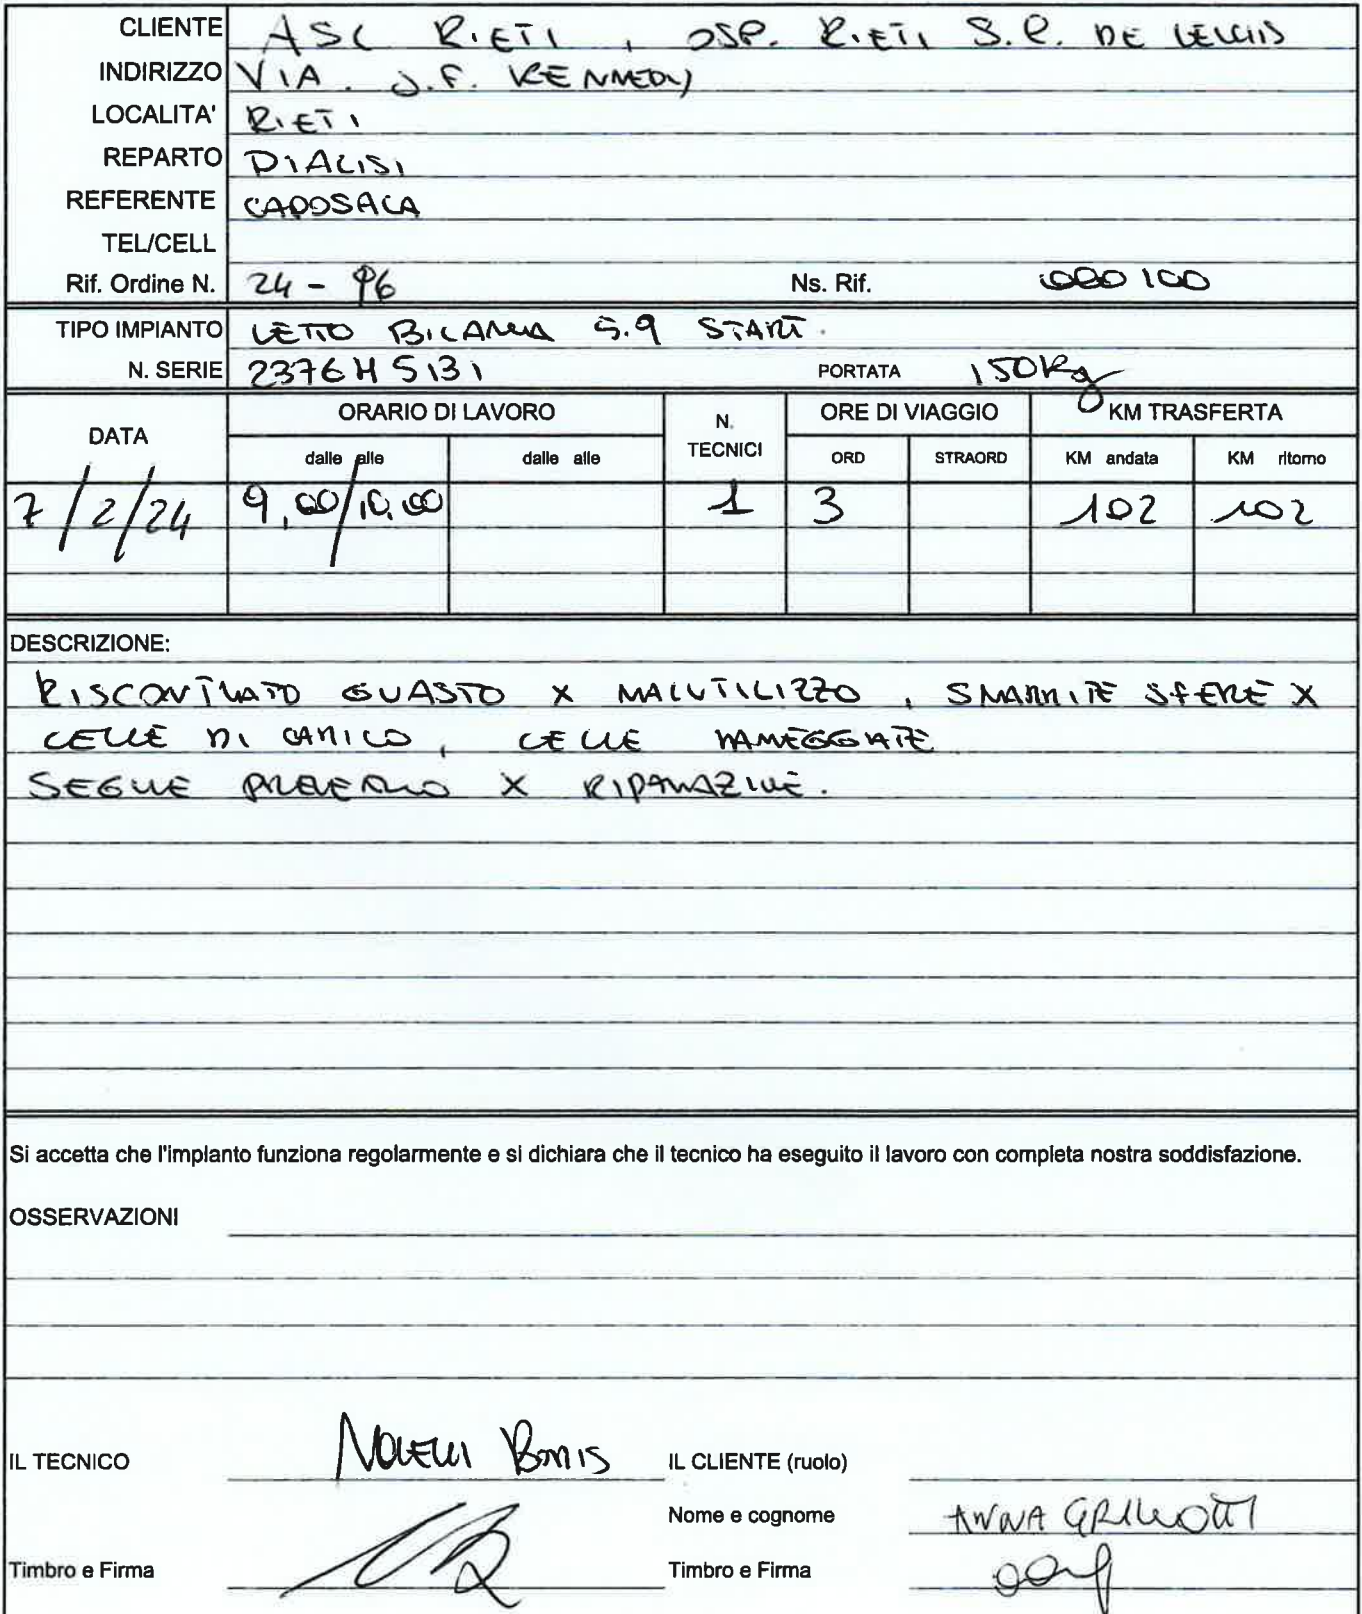 CLIENTE ASL RIETI, OSP. RIETI S.C. DE LELLIS
INDIRIZZO VIA. J.F. KENNEDY
LOCALITA' RIETI
REPARTO DIALISI
REFERENTE CAPOSALA
TEL/CELL
Rif. Ordine N. 24 - 96 Ns. Rif. 000100
TIPO IMPIANTO LETTO BILANCIA S.9 START.
N. SERIE 2376H5131 PORTATA 150Kg
DATA ORARIO DI LAVORO N. TECNICI ORE DI VIAGGIO KM TRASFERTA
dalle alle dalle alle ORD STRAORD KM andata KM ritorno
7/2/24 9,00/10,00 1 3 102 102
DESCRIZIONE:
RISCONTRATO GUASTO X MALUTILIZZO, SMARRITE SFERE X
CELLE DI CARICO, CELLE DANNEGGIATE
SEGUE PREVENTIVO X RIPARAZIONE.
Si accetta che l'impianto funziona regolarmente e si dichiara che il tecnico ha eseguito il lavoro con completa nostra soddisfazione.
OSSERVAZIONI
IL TECNICO NOVELLI BORIS IL CLIENTE (ruolo)
Nome e cognome ANNA GRILLOTTI
Timbro e Firma Timbro e Firma